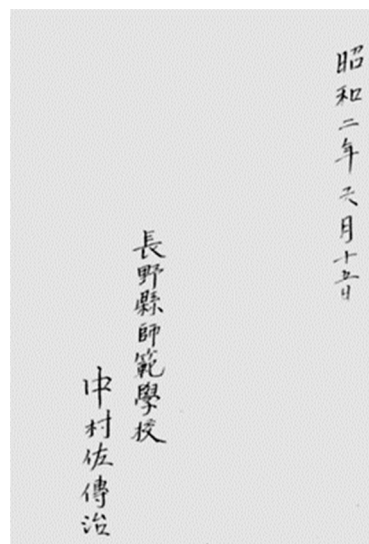 昭和二年六月十五日
長野縣師範學校
中村佐傳治